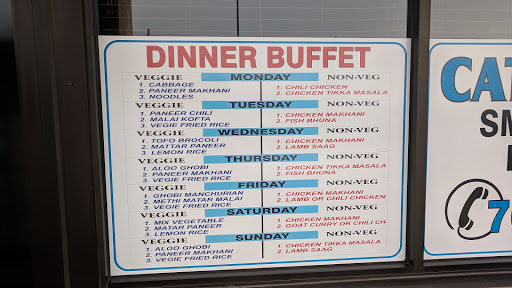 DINNER BUFFET
VEGGIE MONDAY NON-VEG
1. CABBAGE 1. CHILI CHICKEN
2. PANEER MAKHANI 2. CHICKEN TIKKA MASALA
3. NOODLES
VEGGIE TUESDAY NON-VEG
1. PANEER CHILI 1. CHICKEN MAKHANI
2. MALAI KOFTA 2. FISH BHUNA
3. VEGIE FRIED RICE
VEGGIE WEDNESDAY NON-VEG
1. TOFO BROCOLI 1. CHICKEN MAKHANI
2. MATTAR PANEER 2. LAMB SAAG
3. LEMON RICE
VEGGIE THURSDAY NON-VEG
1. ALOO GHOBI 1. CHICKEN TIKKA MASALA
2. PANEER MAKHANI 2. FISH BHUNA
3. VEGIE FRIED RICE
VEGGIE FRIDAY NON-VEG
1. GHOBI MANCHURIAN 1. CHICKEN MAKHANI
2. METHI MATAR MALAI 2. LAMB OR CHILI CHICKEN
3. VEGIE RICE
VEGGIE SATURDAY NON-VEG
1. MIX VEGETABLE 1. CHICKEN MAKHANI
2. MATAR PANEER 2. GOAT CURRY OR CHILI CH
3. LEMON RICE
VEGGIE SUNDAY NON-VEG
1. ALOO GHOBI 1. CHICKEN TIKKA MASALA
2. PANEER MAKHANI 2. LAMB SAAG
3. VEGIE FRIED RICE
CAT
SM
7